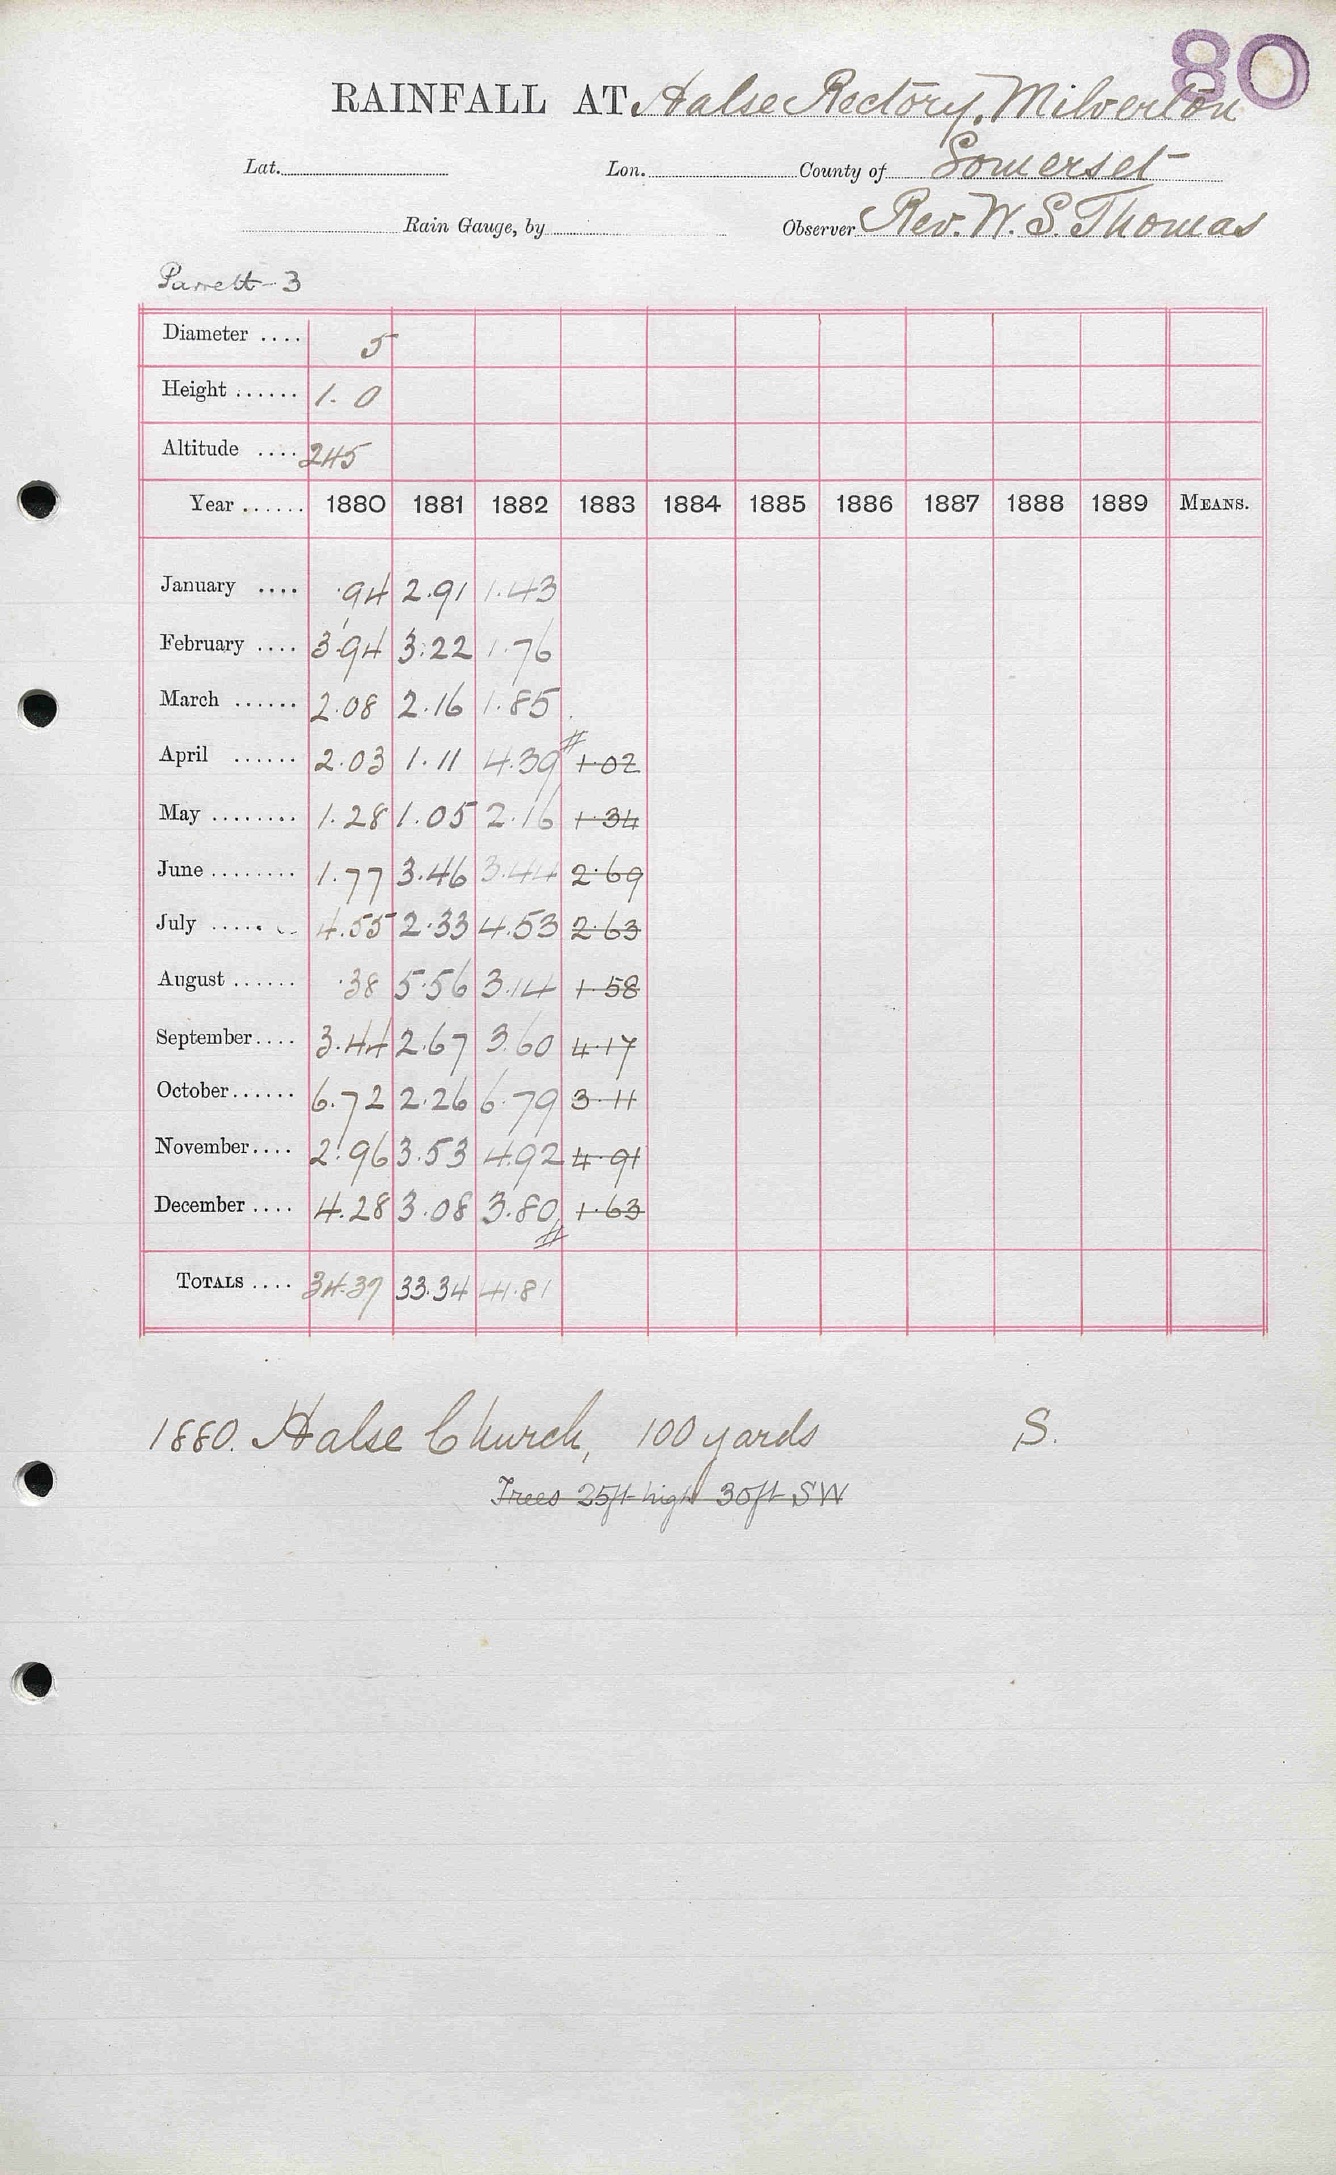 80
RAINFALL AT Halse Rectory, Milverton
Lat. Lon. County of Somerset
Rain Gauge, by Observer Rev. W. S. Thomas
Parrett-3
Diameter .... 5
Height ...... 1. 0
Altitude .... 245
Year ...... 1880 1881 1882 1883 1884 1885 1886 1887 1888 1889 MEANS.
January .... .94 2.91 1.43
February .... 3.94 3.22 1.76
March ...... 2.08 2.16 1.85
April ...... 2.03 1.11 4.39 # 1.02
May ........ 1.28 1.05 2.16 1.34
June ........ 1.77 3.46 3.44 2.69
July ..... 4.55 2.33 4.53 2.63
August ...... .38 5.56 3.14 1.58
September .... 3.44 2.67 3.60 4.17
October ...... 6.72 2.26 6.79 3.11
November .... 2.96 3.53 4.92 4.91
December .... 4.28 3.08 3.80 # 1.63
TOTALS .... 34.37 33.34 41.81
1880. Halse Church, 100 yards S.
Trees 25ft high 30ft SW